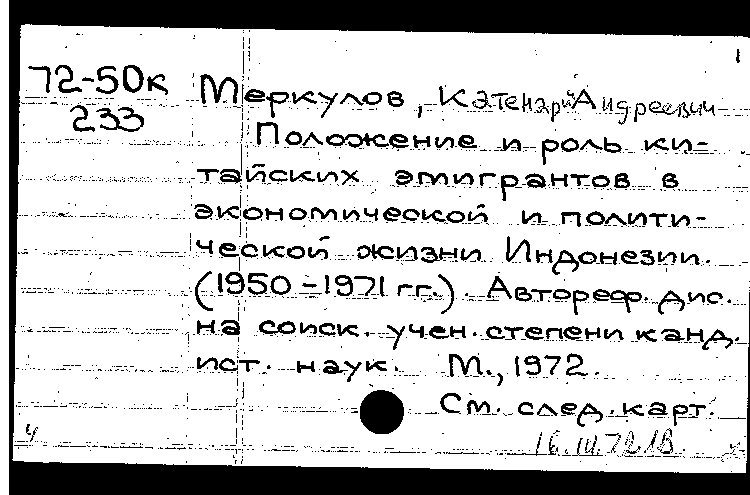 1
72-50к
233
Меркулов, Катенарий Андреевич
Положение и роль ки-
тайских эмигрантов в
экономической и полити-
ческой жизни Индонезии.
(1950-1971 гг.). Автореф. дис.
на соиск. учен. степени канд.
ист. наук. М., 1972.
См. след. карт.
4